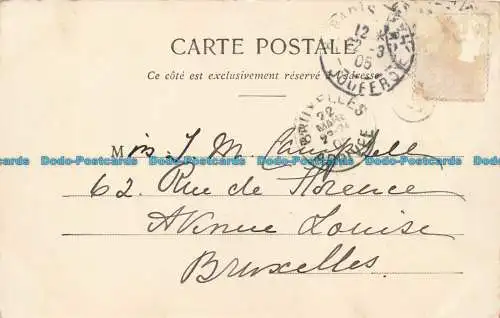 CARTE POSTALE
Ce côté est exclusivement réservé à l'adresse
PARIS
12
05
BRUXELLES
22
MARS
Miss J. M. Campbell
Dodo-Postcards Dodo-Postcards Dodo-Postcards Dodo-Postcards
62. Rue de Florence
Avenue Louise
Dodo-Postcards Dodo-Postcards Dodo-Postcards Dodo-Postcards
Bruxelles.